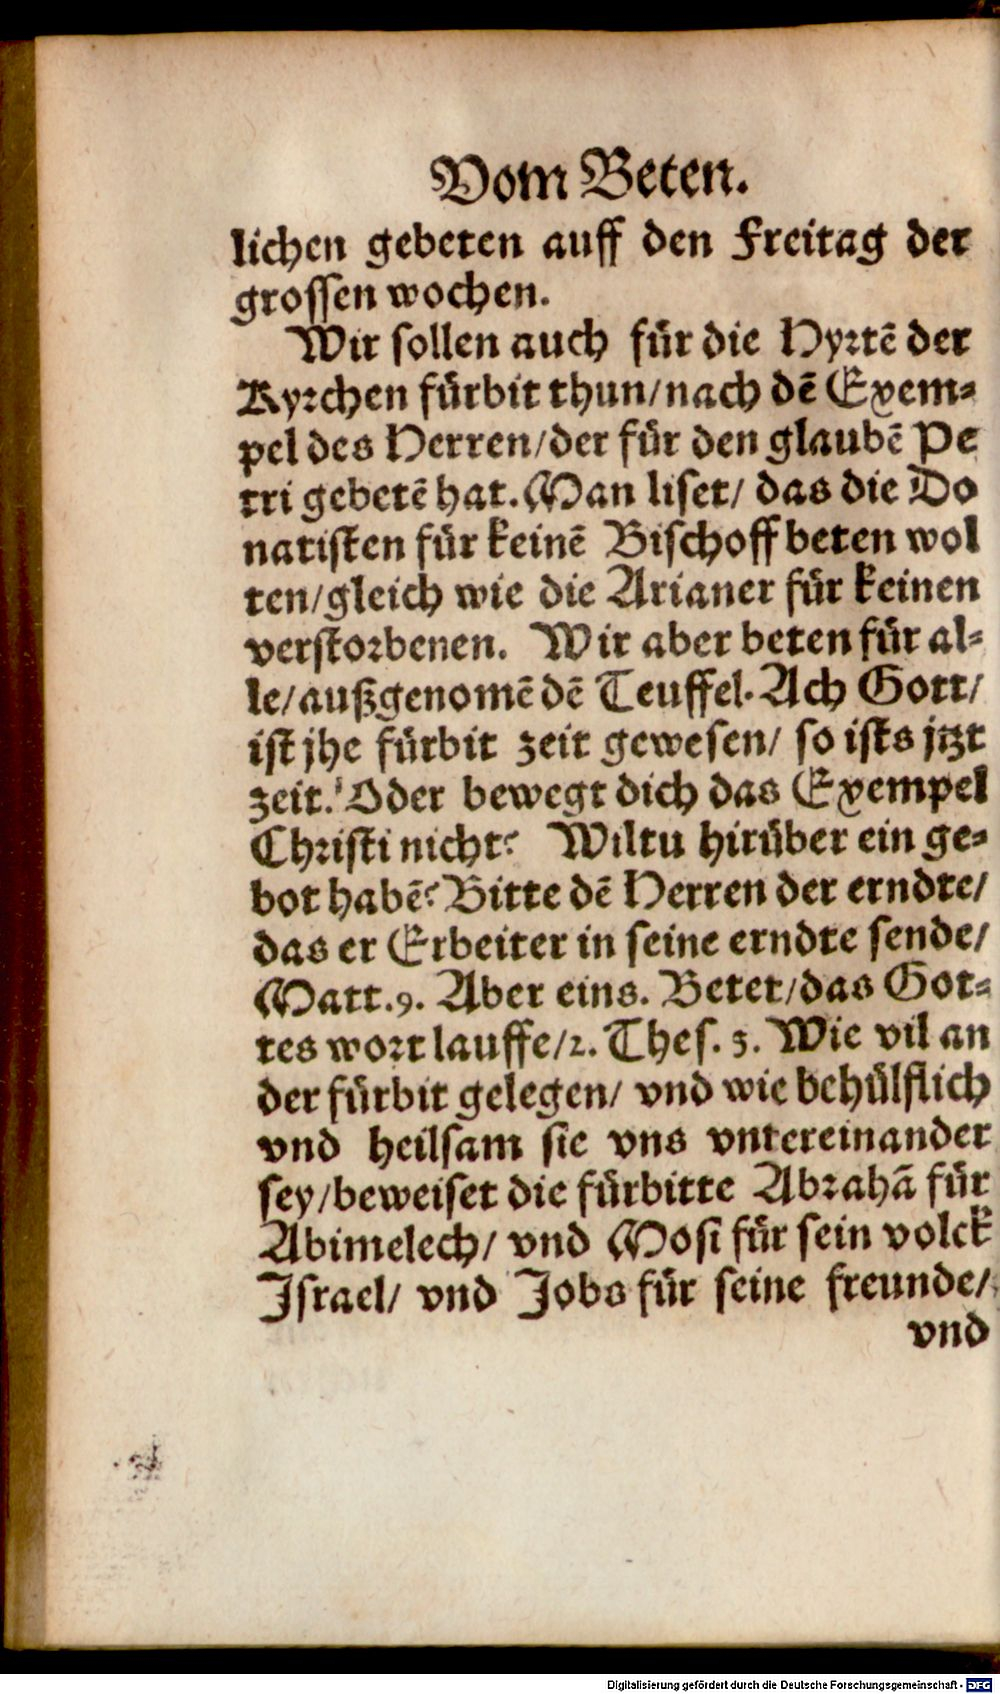 Vom Beten.
lichen gebeten auff den Freitag der
grossen wochen.
Wir sollen auch für die Hyrtē der
Kyrchen fürbit thun/nach dē Exem⸗
pel des Herren/der für den glaubē Pe
tri gebetē hat. Man liset/ das die Do
natisten für keinē Bischoff beten wol
ten/gleich wie die Arianer für keinen
verstorbenen. Wir aber beten für al⸗
le/außgenomē dē Teuffel. Ach Gott/
ist jhe fürbit zeit gewesen/ so ists jtzt
zeit. Oder bewegt dich das Exempel
Christi nicht? Wiltu hirüber ein ge⸗
bot habē? Bitte dē Herren der erndte/
das er Erbeiter in seine erndte sende/
Matt.9. Aber eins. Betet/das Got⸗
tes wort lauffe/2. Thes. 3. Wie vil an
der fürbit gelegen/ vnd wie behülflich
vnd heilsam sie vns vntereinander
sey/beweiset die fürbitte Abrahā für
Abimelech/ vnd Mosi für sein volck
Israel/ vnd Jobs für seine freunde/
vnd
Digitalisierung gefördert durch die Deutsche Forschungsgemeinschaft - DFG